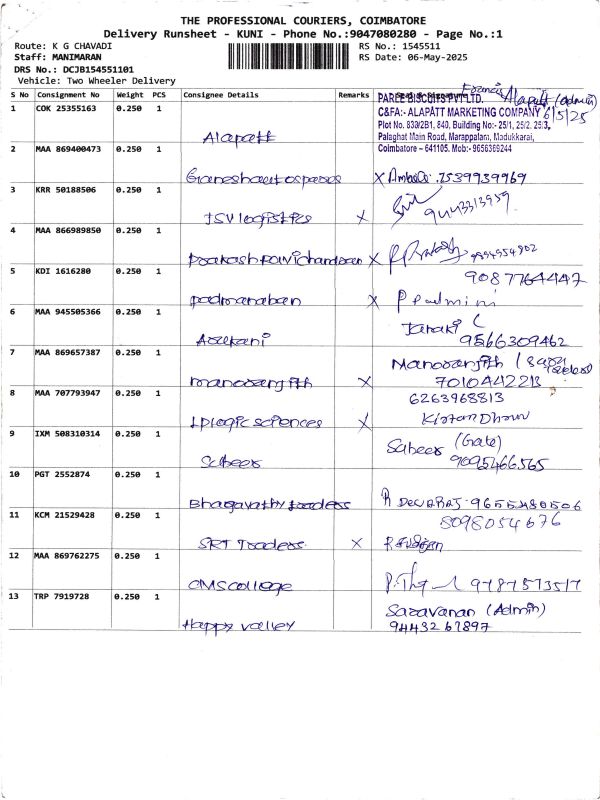 THE PROFESSIONAL COURIERS, COIMBATORE
Delivery Runsheet - KUNI - Phone No.:9047080280 - Page No.:1
Route: K G CHAVADI
Staff: MANIMARAN
DRS No.: DCJB154551101
Vehicle: Two Wheeler Delivery
RS No.: 1545511
RS Date: 06-May-2025
S No Consignment No Weight PCS Consignee Details Remarks
Francis Alapatt (admin)
6/5/25
PAREE BISCUITS PVT LTD.
C&FA:- ALAPATT MARKETING COMPANY
Plot No. 839/2B1, 840, Building No:- 25/1, 25/2, 25/3,
Palaghat Main Road, Marappalam, Madukkarai,
Coimbatore – 641105. Mob:- 9656369244
1 COK 25355163 0.250 1 Alapatt
2 MAA 869400473 0.250 1 X 7539939969
3 KRR 50188506 0.250 1 JSV logistics X 9443313959
4 MAA 866989850 0.250 1 Prakash Ravichandran X 9994954902
5 KDI 1616280 0.250 1 padmanaban X P padmini 9087764447
6 MAA 945505366 0.250 1 Janaki C 9566309462
7 MAA 869657387 0.250 1 manoranjith X Manoranjith 7010442213
8 MAA 707793947 0.250 1 LPLogic sciences X 6263968813
9 IXM 508310314 0.250 1 Sabeer Sabeer (Gate) 9095466565
10 PGT 2552874 0.250 1 Bhagavathy traders R DEVARAJ-9655480506
11 KCM 21529428 0.250 1 SRT Traders X 8098054676
12 MAA 869762275 0.250 1 CMS college 9787573517
13 TRP 7919728 0.250 1 Happy valley Saravanan (Admin) 9443267897